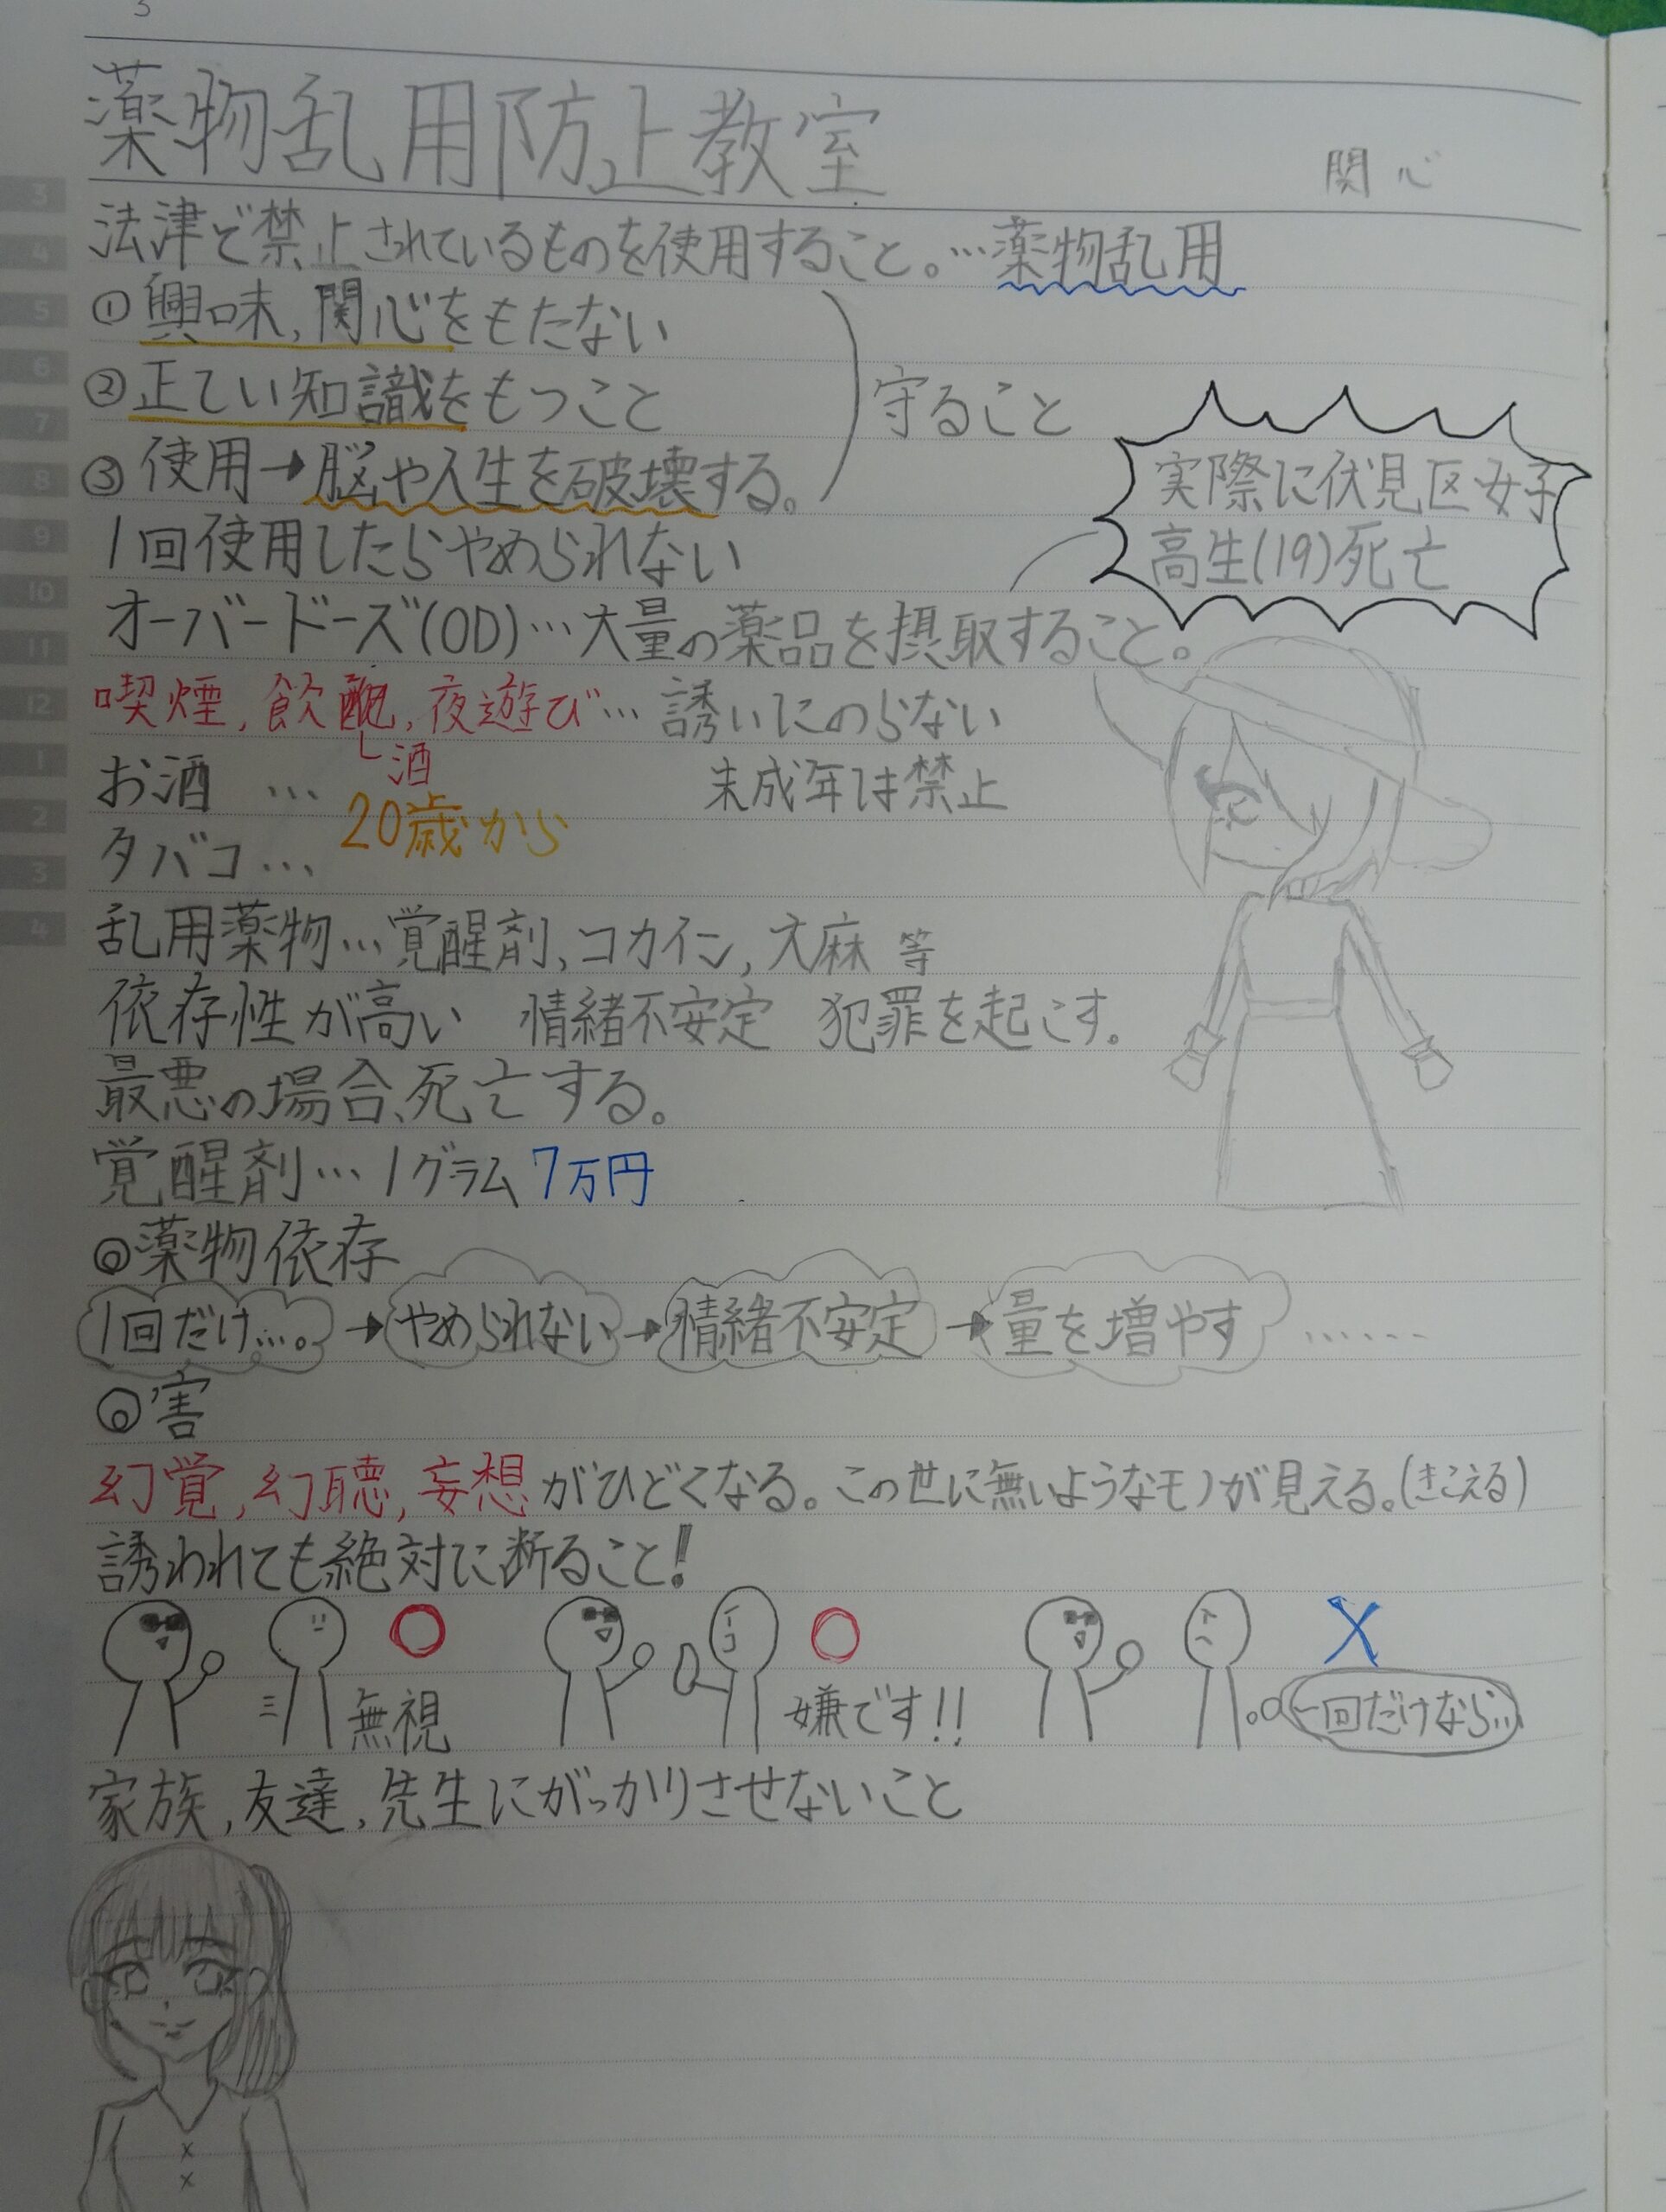 薬物乱用防止教室
関心
法津で禁止されているものを使用すること。…薬物乱用
①興味,関心をもたない
②正しい知識をもつこと
③使用→脳や人生を破壊する。
守ること
実際に伏見区女子
高生(19)死亡
1回使用したらやめられない
オーバードーズ(OD)…大量の薬品を摂取すること。
喫煙,飲酒,夜遊び…誘いにのらない
酒
お酒 …
タバコ…
20歳から
未成年は禁止
乱用薬物…覚醒剤,コカイン,大麻 等
依存性が高い 情緒不安定 犯罪を起こす。
最悪の場合、死亡する。
覚醒剤…1グラム7万円
◎薬物依存
1回だけ…。→やめられない→情緒不安定→量を増やす……
◎害
幻覚,幻聴,妄想がひどくなる。この世に無いようなモノが見える。(きこえる)
誘われても絶対に断ること!
無視
嫌です!!
一回だけなら…
家族,友達,先生にがっかりさせないこと
3
4
5
6
7
8
9
10
11
12
1
2
3
4